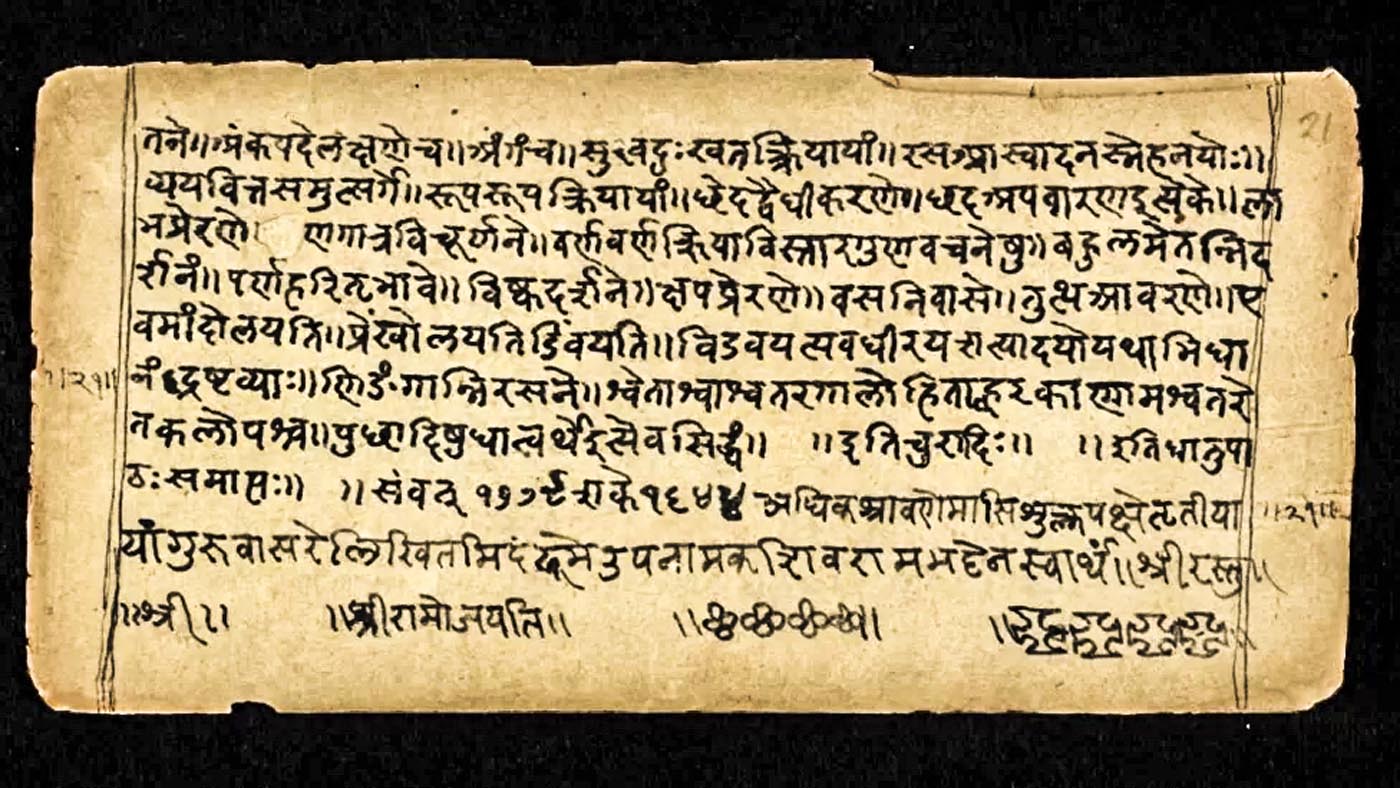 तने॥अंकपदेलक्षणेच॥अंगंच॥सुखदुःखतत्क्रियायां॥रसआस्वादनस्नेहनयोः॥
व्ययवित्तसमुत्सर्गे॥रूपरूपक्रियायां॥छेदद्वैधीकरणे॥छदअपवारणइत्येके॥ला
भप्रेरणे। णगात्रविचूर्णने॥वर्णवर्णक्रियाविस्तारगुणवचनेषु॥बहुलमेतन्निद
र्शनं॥पर्णहरितभावे॥विष्कदर्शने॥क्षपप्रेरणे॥वसनिवासे॥तुत्थआवरणे॥ए
वमांदोलयति॥प्रेंखोलयतिडिंवयति॥विडवयत्यवधीरयत्यादयोयथाभिधा
नंद्रष्टव्याः॥णिङंगान्निरसने॥श्वेताश्वाश्वतरगालोहिताह्वरकाणामश्वतरे
तकलोपश्च॥पुछादिषुधात्वर्थइत्येवसिद्धं॥ ॥इतिचुरादिः॥ ॥इतिधातुपा
ठः समाप्तः॥ ॥संवत् शके अधिकश्रावणेमासिशुक्लपक्षेतृतीया
यांगुरुवासरेलिखितमिदं उपनामकशिवरामभट्टेनस्वार्थं॥श्रीरस्तु॥
॥श्री॥ ॥श्रीरामोजयति॥
॥२१॥
॥२१॥
21